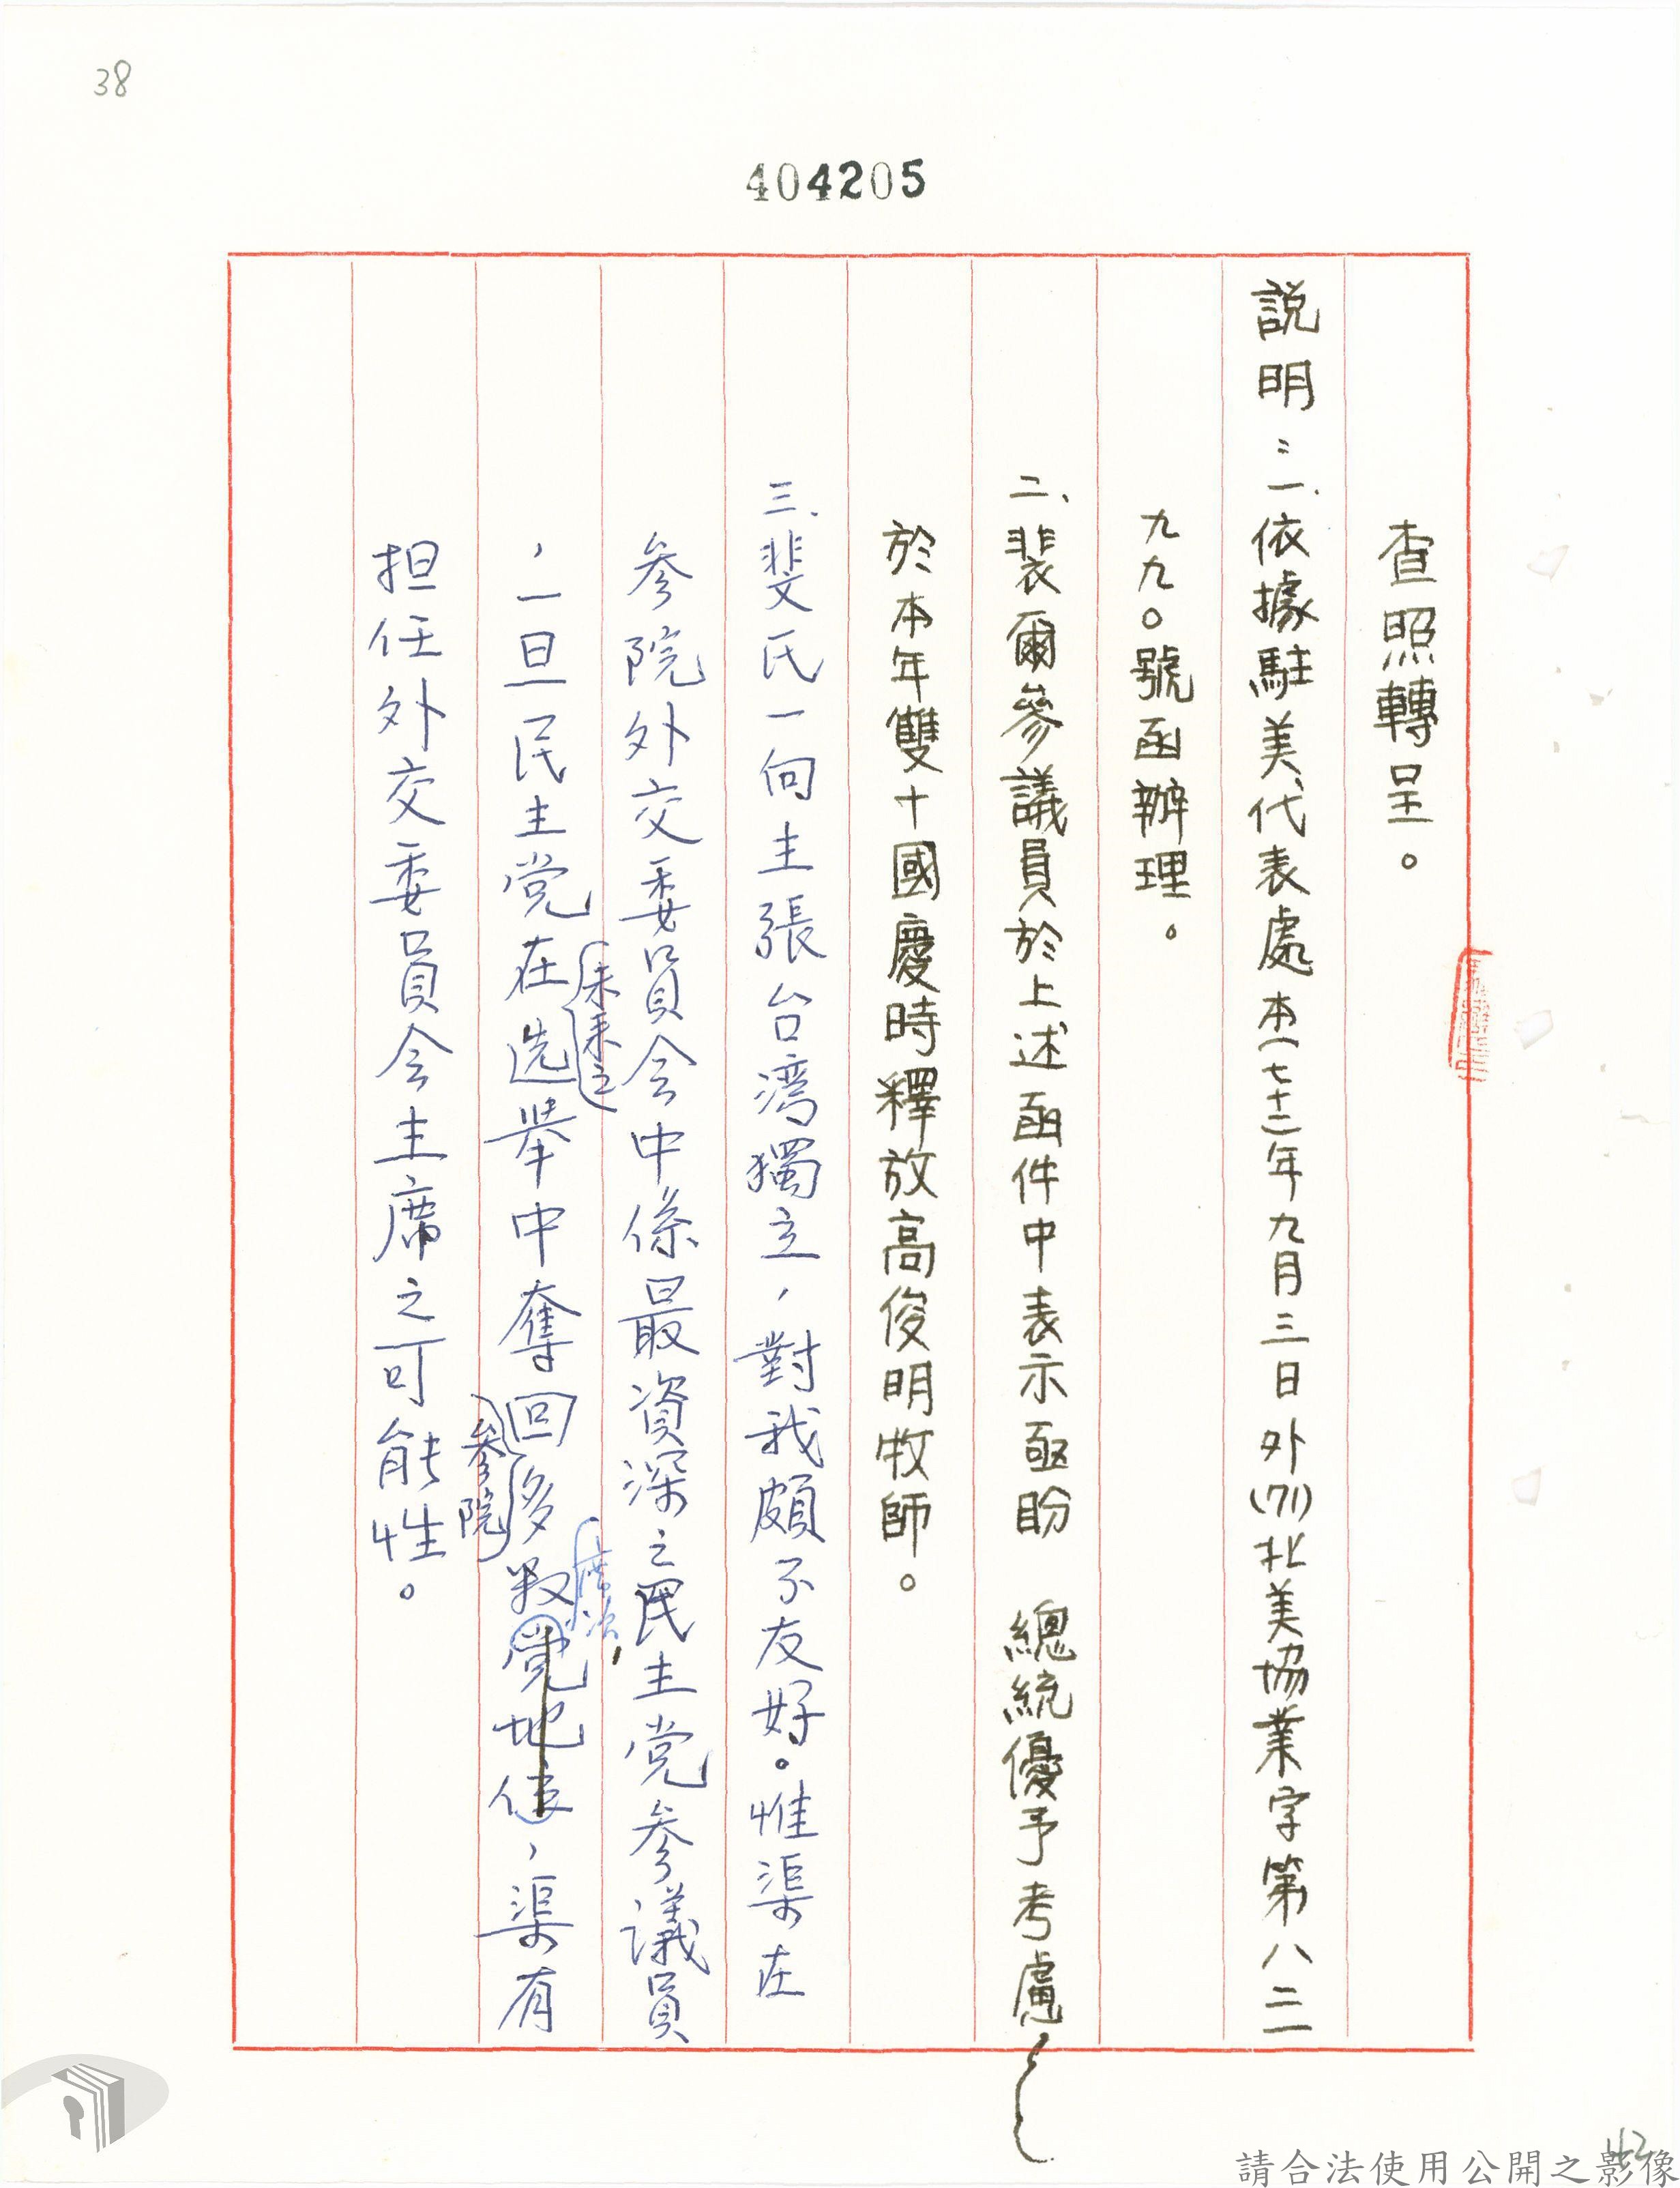 38
404205
查照轉呈。
說明：一.依據駐美代表處本(七十二)年九月三日外(71)北美協業字第八二
九九〇號函辦理。
二、裴爾參議員於上述函件中表示亟盼　總統優予考慮
於本年雙十國慶時釋放高俊明牧師。
三、斐氏一向主張台湾獨立，對我頗不友好。惟渠在
参院外交委員会中係最資深之民主党参議員
，一旦民主党在未来之选举中奪回参院多数席次，渠有
担任外交委員会主席之可能性。
42
請合法使用公開之影像